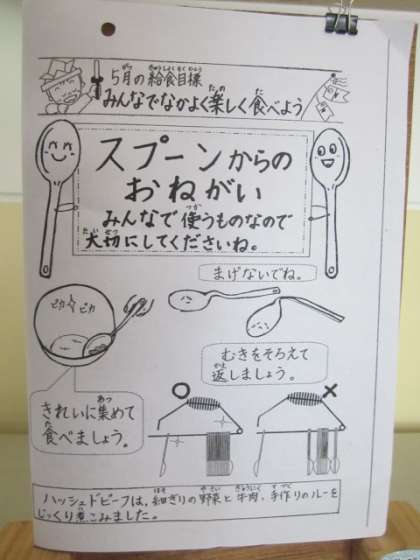 5月の給食目標
みんなでなかよく楽しく食べよう
スプーンからの
おねがい
みんなで使うものなので
大切にしてくださいね。
まげないでね。
ピカ ピカ
むきをそろえて
返しましょう。
きれいに集めて
食べましょう。
○ ×
ハッシュドビーフは、細ぎりの野菜と牛肉、手作りのルーを
じっくり煮こみました。